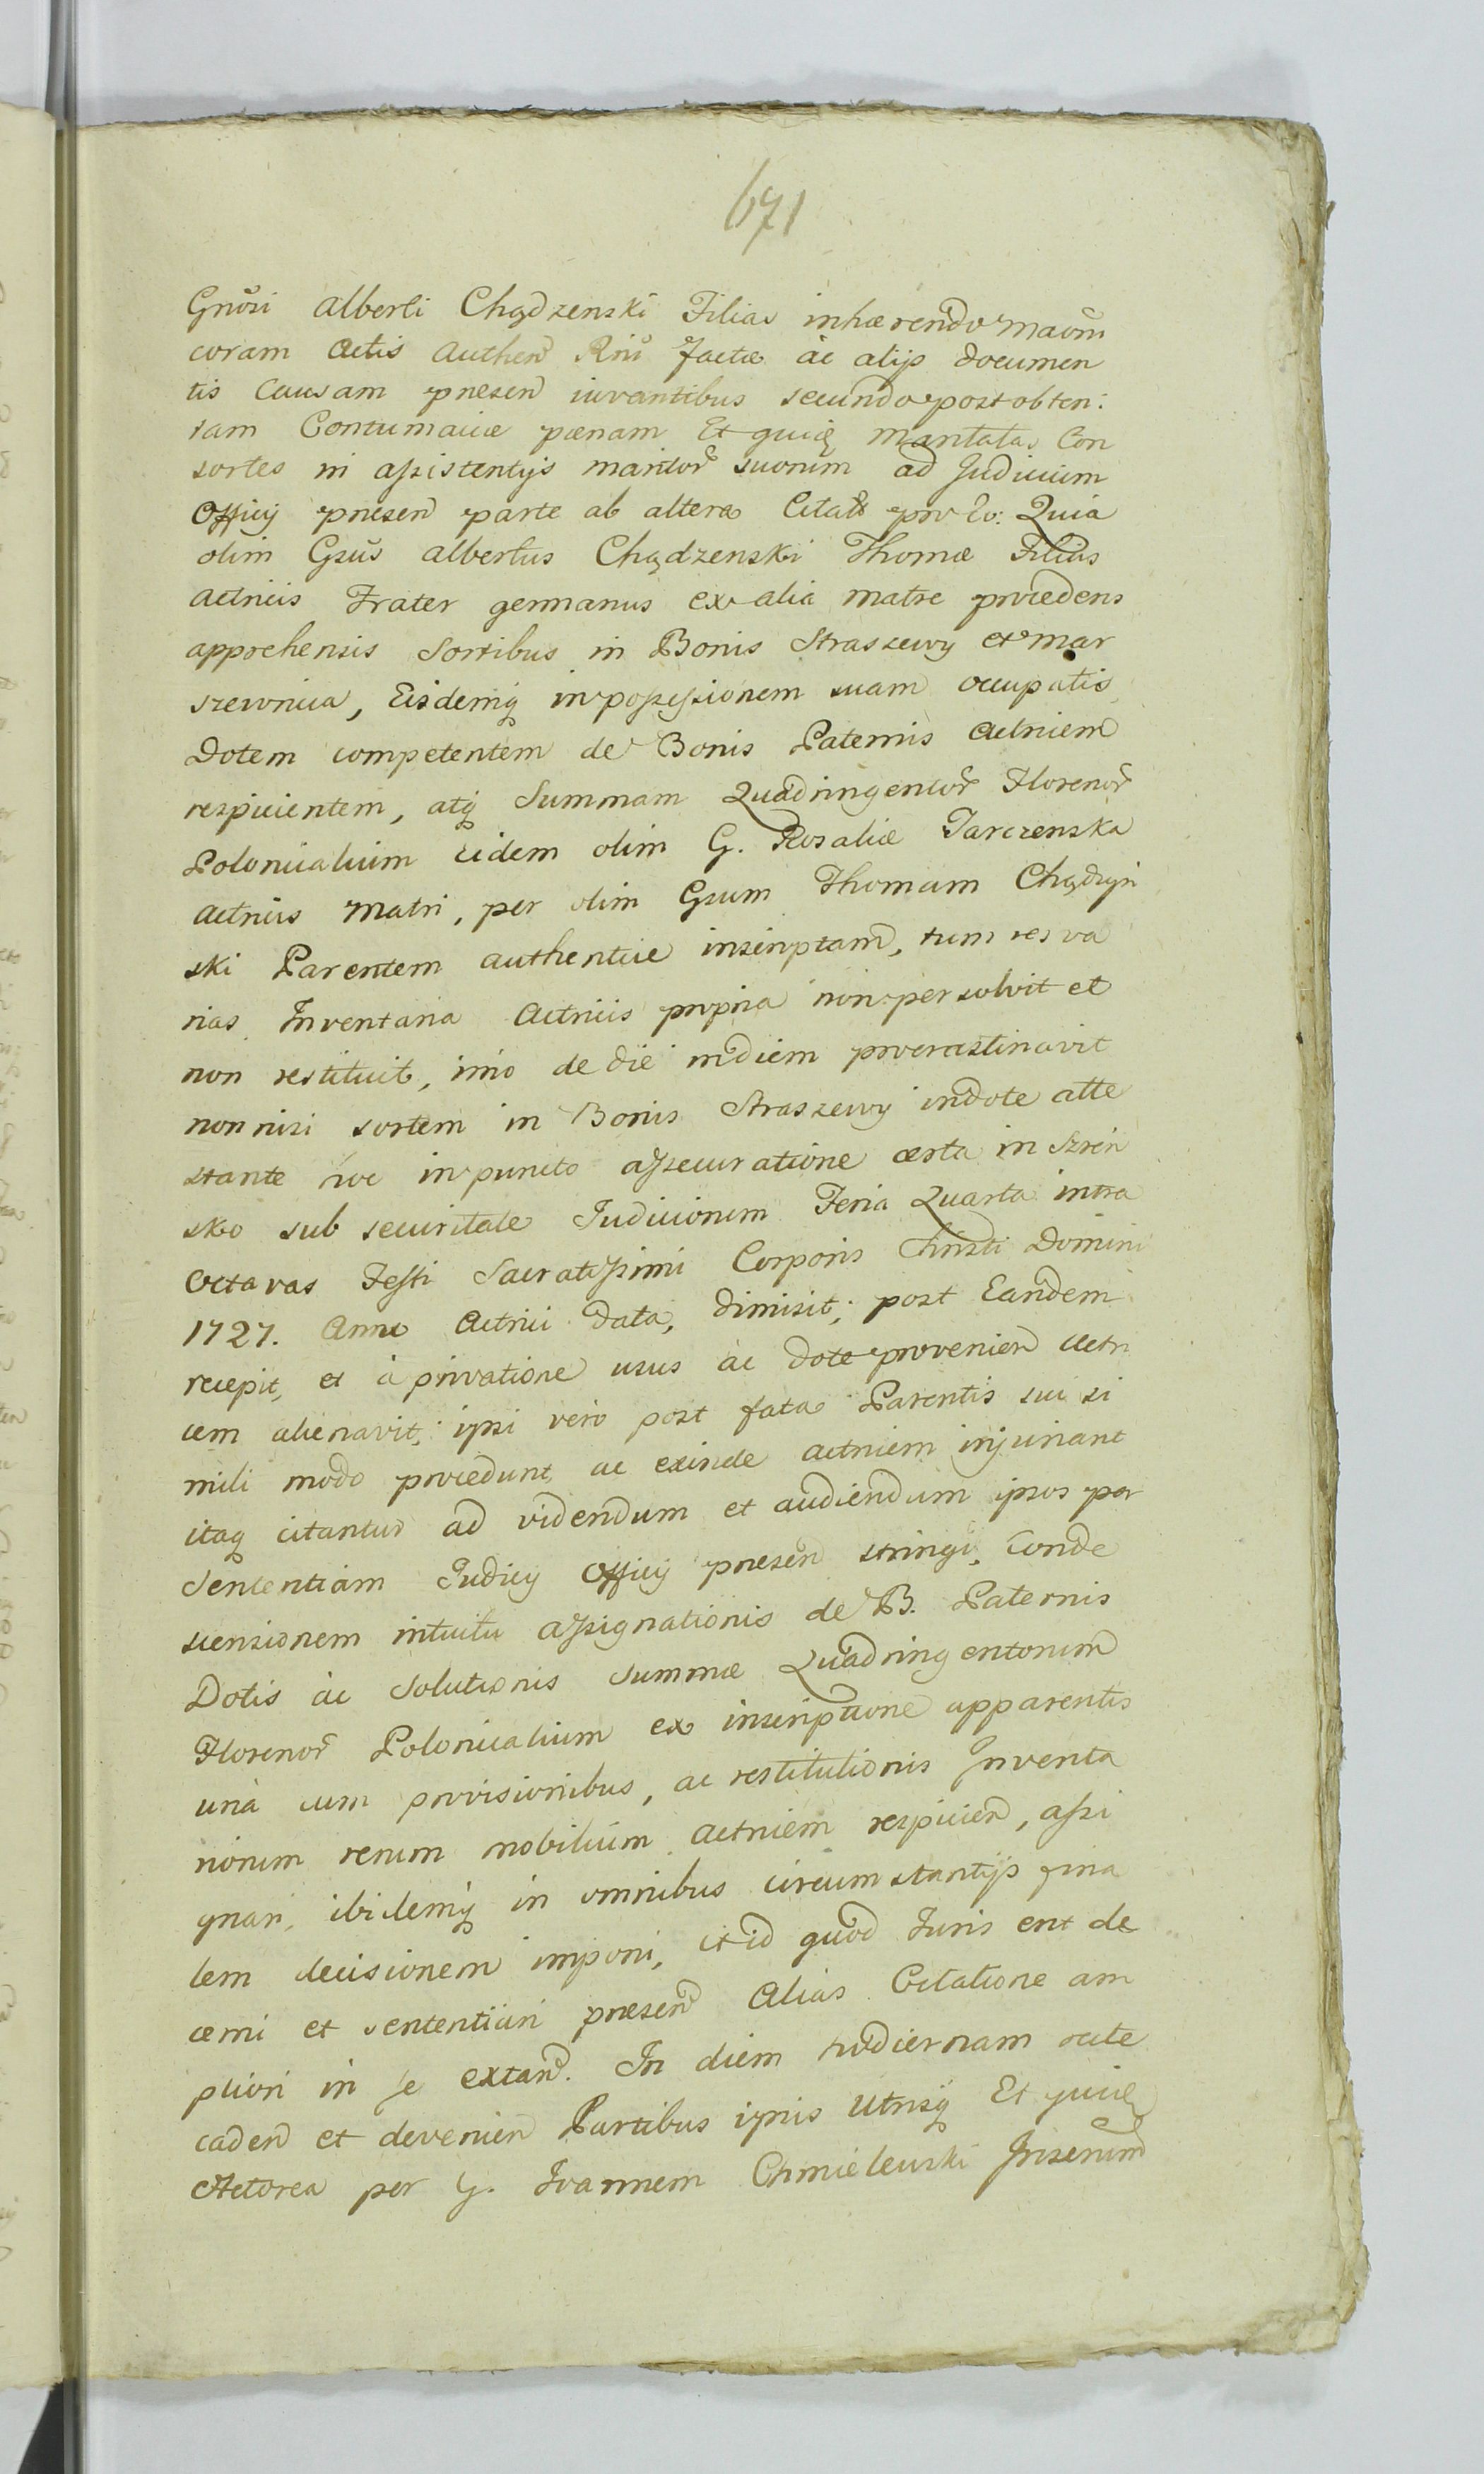 671
Gnōsi Alberti Chądzenski Filias inhærendo
coram Actis Authen Rñi factæ ac alijs documen
tis Causam præsen iuvantibus secundo post obten:
tam Contumaciæ pœnam Et quidē Maritatas Con
sortes in assistentijs maritor̃ suorum ad Judicium
Officij præsen parte ab altera Citat̃ pro Eo: Quia
olim Gsũs Albertus Chądzenski Thomæ Filius
Actricis Frater germanus ex alia matre procedens
apprehensis Sortibus in Bonis Straszewy et Mar
szewnica, Eisdemq̃ in possessionem suam occupatis
Dotem competentem de Bonis Paternis Actricem
respicientem, atq̃ Summam Quadringentor̃ Florenor̃
Polonicalium eidem olim G. Rosaliæ Tarczenska
Actricis Matri, per olim Gsum Thomam Chądzyn
ski Parentem authentice inscriptam, tum res va
rias Inventaria Actricis propria non persolvit et
non restituit, imo de die in diem procrastinavit
non nisi sortem in Bonis Straszewy in dote atte
stante hoc in puncto assecuratione certa in Szren
sko sub securitate Judiciorum Feria Quarta intra
Octavas Festi Sacratissimi Corporis Christi Domini
1727. Anno Actrici data, dimisit, post Eandem
recepit, et a privatione usus ac dote provenien Actri
cem alienavit, ipsi vero post fata Parentis sui si
mili modo procedunt, ac exinde actricem injuriant
itaq̃ citantur ad videndum et audiendum ipsos per
Sententiam Judicij Officij præsen stringi, Conde
scensionem intuitu assignationis de B. Paternis
Dotis ac Solutionis Summæ Quadringentorum
Florenor̃ Polonicalium ex inscriptione apparentis
una cum provisionibus, ac restitutionis Inventa
riorum rerum mobilium Actricem respicien, assi
gnari, ibidemq̃ in omnibus circumstantijs fina
lem decisionem imponi, et id quod Juris erit de
cerni et sententiari præsen Alias Citatione am
pliori in se extan. In diem hodiernam rite
caden et devenien Partibus ipsis Utrisq̃ Et quidē
Actorea per G. Joannem Chmielewski